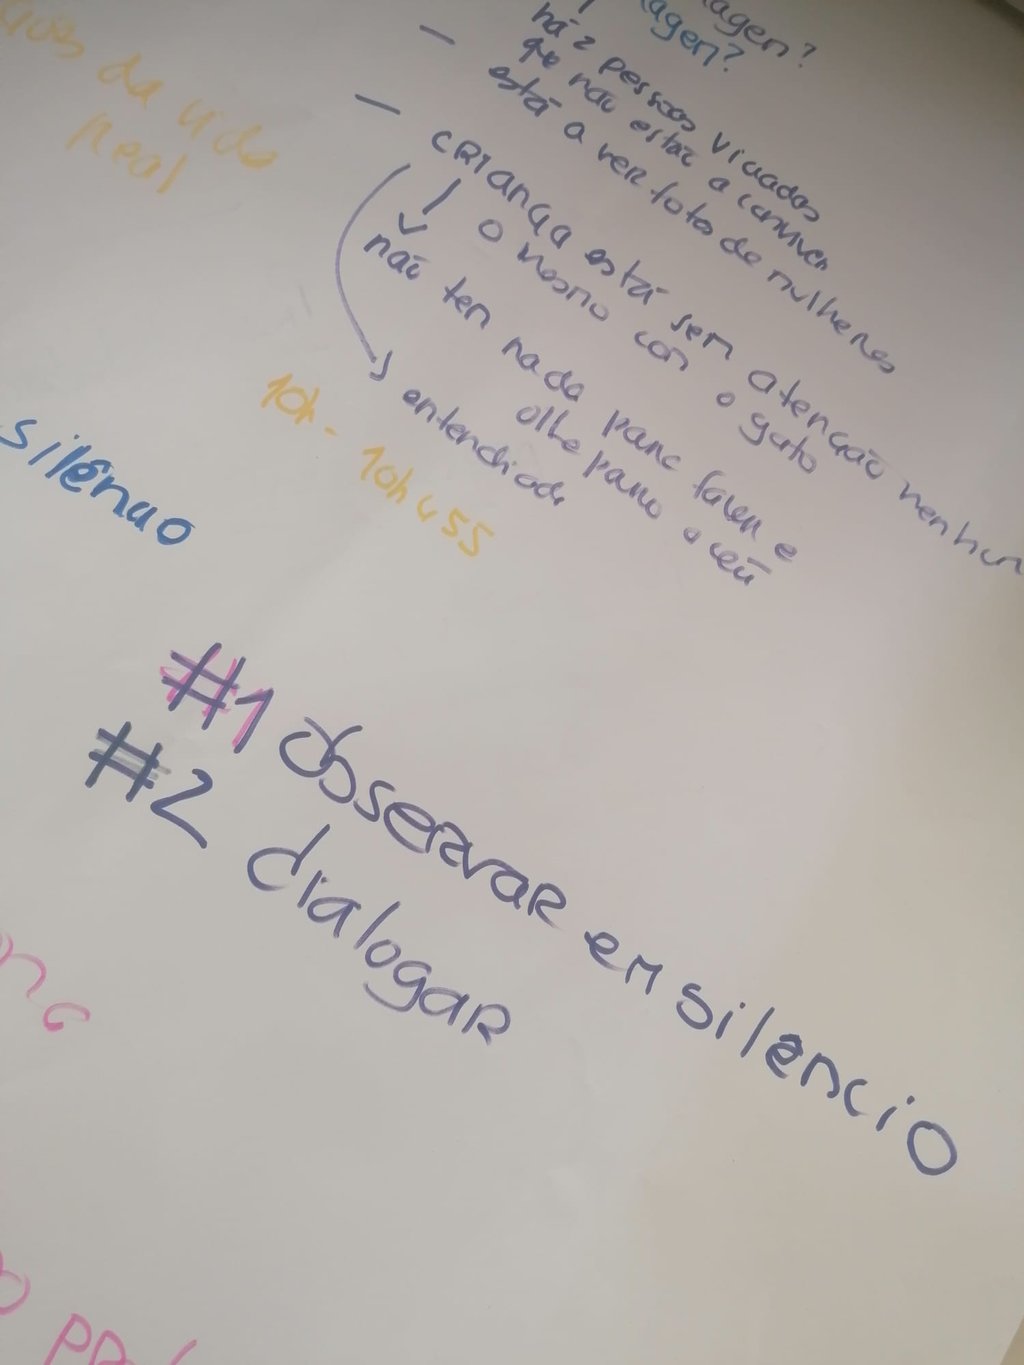 agem?
agem?
há 2 pessoas viciadas
que não estão a conviver
está a ver fotos de mulheres
— criança está sem atenção nenhum
o mesmo com o gato
não tem nada para fazer e
olha para o céu
entendiada
da vida
Real
10h - 10h455
silêncio
#1 observar em silêncio
#2 dialogar